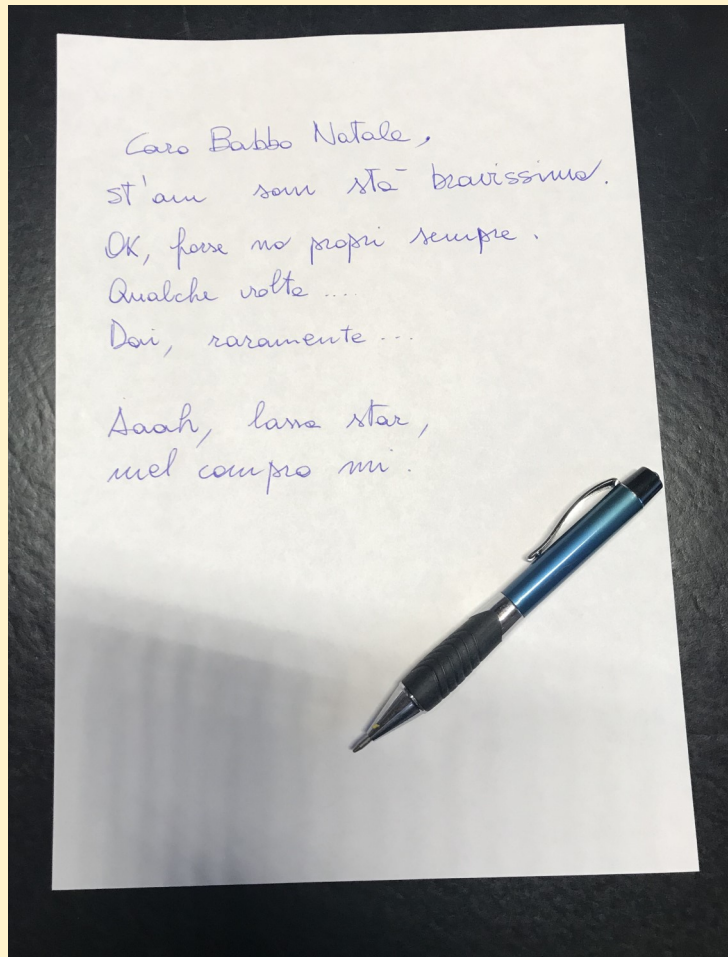 Caro Babbo Natale,
st'am som stā bravissima.
OK, forse no propri sempre.
Qualche volta ....
Dai, raramente ...
Aaah, lassa star,
mel compro mi.